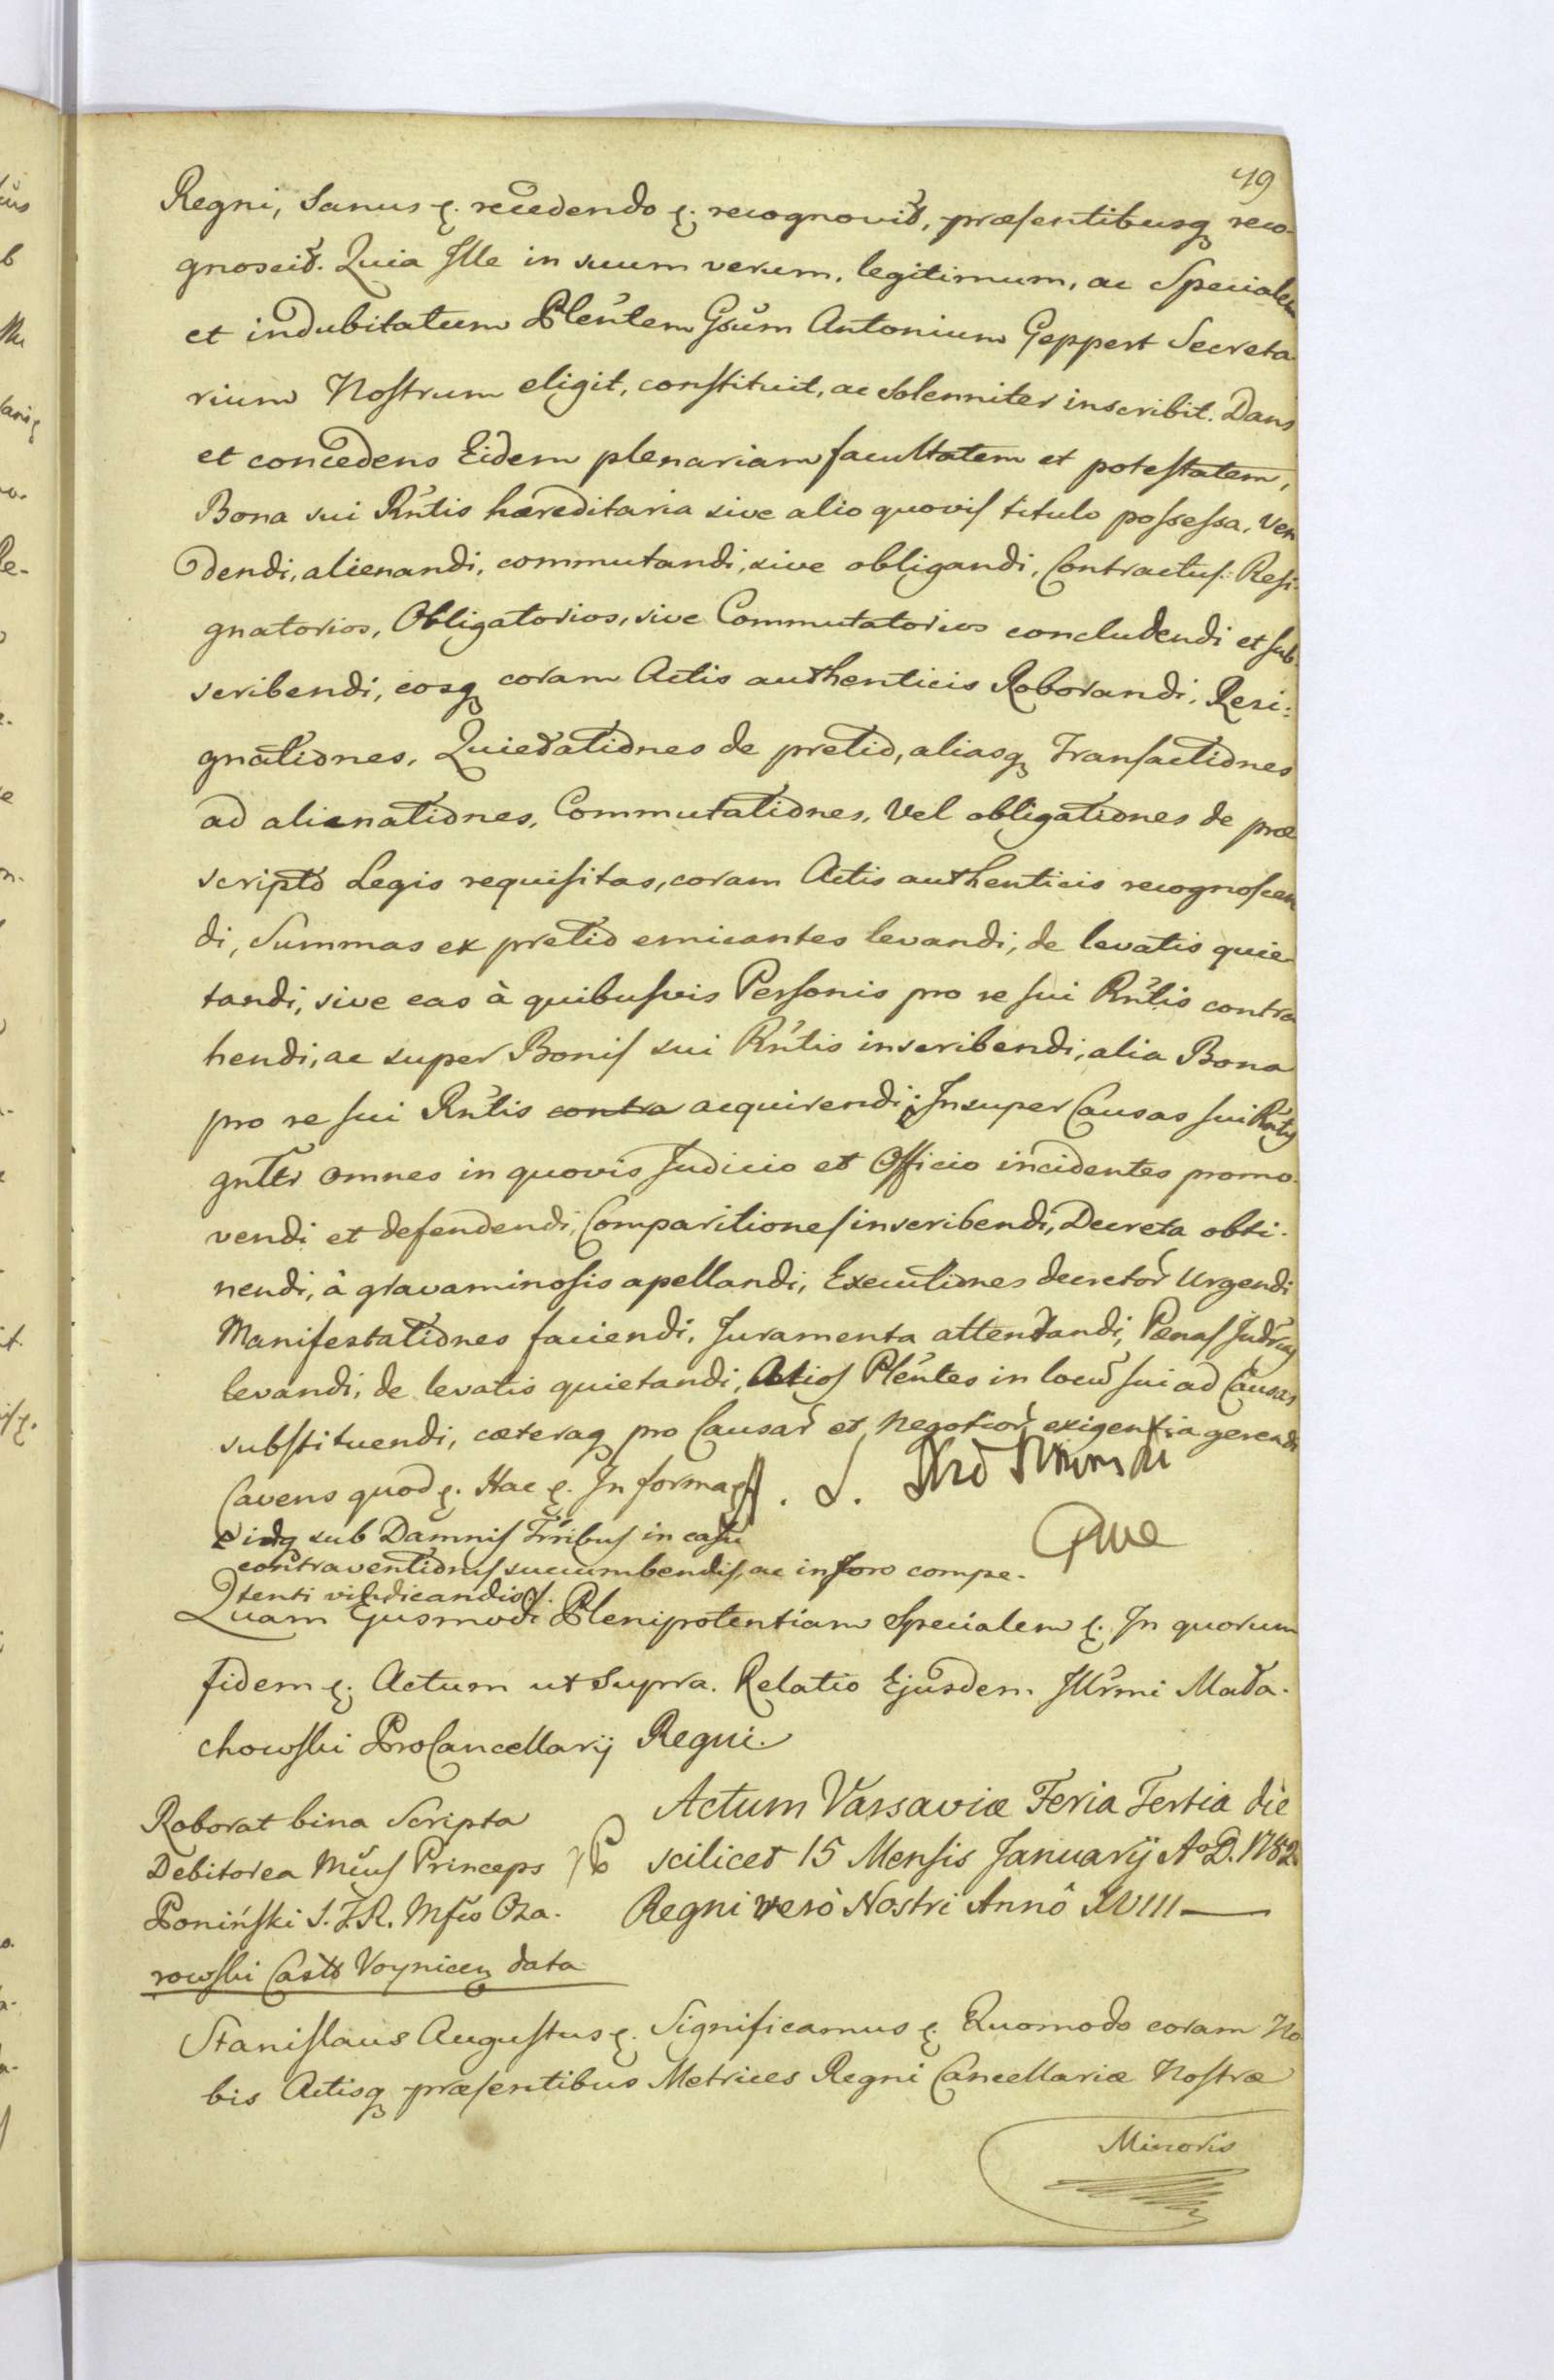 49
Regni, Sanus ꝛ. recedendo ꝛ. recognovit, præsentibusq reco-
gnoscit. Quia Ille in suum verum, legitimum, ac Specialem
et indubitatum Pleńtem Gsum Antonium Geppert Secreta
rium Nostrum eligit, constituit, ac solenniter inscribit. Dans
et concedens Eidem plenariam facultatem et potestatem,
Bona sui Rńtis hæreditaria sive alio quovis titulo possessa, Ven
dendi, alienandi, commutandi, sive obligandi, Contractus: Resi-
gnatorios, Obligatorios, sive Commutatorios concludendi et sub
scribendi, eosq coram Actis authenticis Roborandi, Resi:
gnationes, Quietationes de pretio, aliasq Transactiones
ad alienationes, Commutationes, Vel obligationes de præ
scripto Legis requisitas, coram Actis authenticis recognoscen
di, Summas ex pretio emicantes levandi, de levatis quie
tandi, sive eas à quibusvis Personis pro re sui Rńtis contra
hendi, ac super Bonis sui Rńtis inscribendi, alia Bona
pro re sui Rńtis contra acquirendi; Insuper Causas sui Rńtis
gnltr omnes in quovis Judicio et Officio incidentes promo-
vendi et defendendi, Comparitiones inscribendi, Decreta obti-
nendi, à gravaminosis apellandi, Executiones decretor Urgendi
Manifestationes faciendi, Juramenta attentandi, Pænas
levandi, de levatis quietandi, Alios Pleńtes in locu sui ad Causas
substituendi, cæteraq pro Causar et Negotior exigentia gerendi
Cavens quod ꝛ. Hac ꝛ. In forma
idq sub Damnis Trribus in casu
contraventionis succumbendis, ac in foro compe-
tenti vindicandis
Quam Ejusmodi Plenipotentiam Specialem ꝛ. In quorum
fidem ꝛ. Actum ut supra. Relatio Ejusdem Illrmi Mała-
chowski ProCancellarij Regni.
Roborat bina Scripta
Debitorea Princeps
Poniński S. T. R. Mfco Oża-
rowski Castō Voynicen data
Actum Varsaviæ Feria Tertia die
scilicet 15 Mensis Januarij Aº D. 1782
Regni verò Nostri Annô XVIII
Stanislaus Augustus ꝛ. Significamus ꝛ. Quomodo coram No
bis Actisq præsentibus Metrices Regni Cancellariæ Nostræ
Minoris